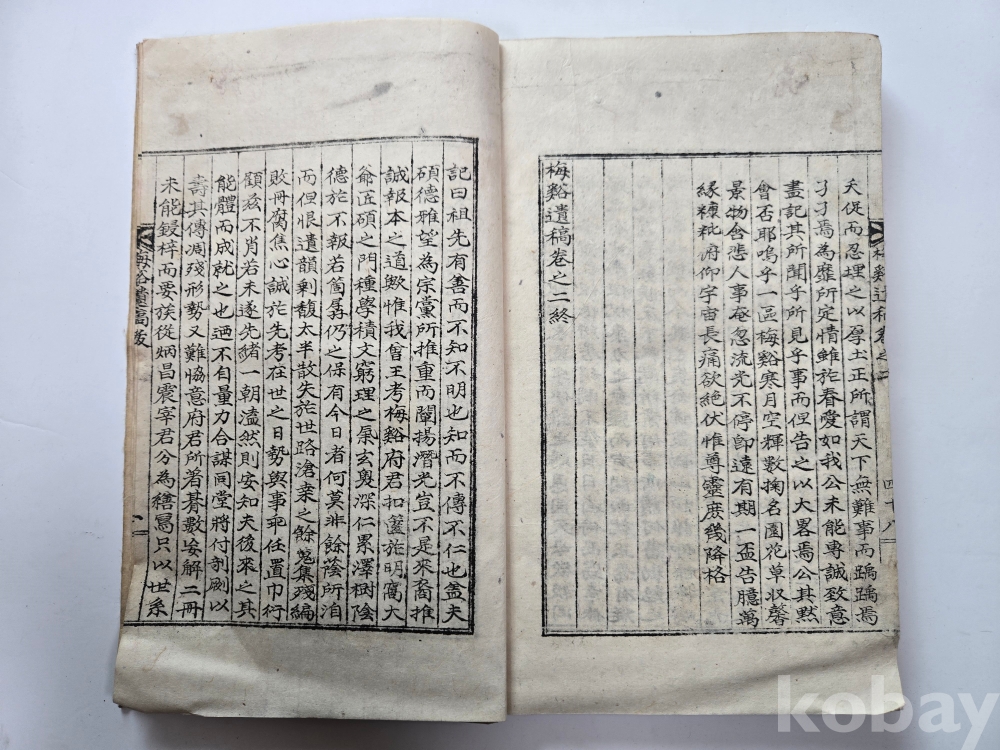 天促而忍埋之以厚土正所謂天下無難事而蹢蹢焉
孑孑焉為靡所定情雖於眷愛如我公未能專誠致意
畫記其所聞乎所見乎事而但告之以大畧焉公其默
會否耶嗚乎一區梅谿寒月空輝數掬名園花草收馨
景物含悲人事奄忽流光不停卽遠有期一盃告臆萬
緣糠粃府仰宇宙長痛欲絶伏惟尊靈庶幾降格
梅谿遺稿卷之二終
梅谿遺稿卷之二
四十八
記曰祖先有善而不知不明也知而不傳不仁也盖夫
碩德雅望為宗黨所推重而闡揚潛光豈不是來裔推
誠報本之道歟惟我曾王考梅谿府君扣盬於明窩大
爺匠碩之門種學積文窮理之氣玄奧深仁累澤樹陰
德於不報若箇孱仍之保有今日者何莫非餘蔭所洎
而但恨遺韻剩馥太半散失於世路滄桑之餘蒐集殘編
敗冊腐焦心誠於先考在世之日勢與事乖任置巾衍
顧玆不肖若未遂先緖一朝溘然則安知夫後來之其
能體而成就之也迺不自量力合謀同堂將付剞劂以
壽其傳凋殘形勢又難恊意府君所著碁數妄解二冊
未能鋟梓而要族從炳昌震宰君分為繕寫只以世系
梅谿遺稿跋
一